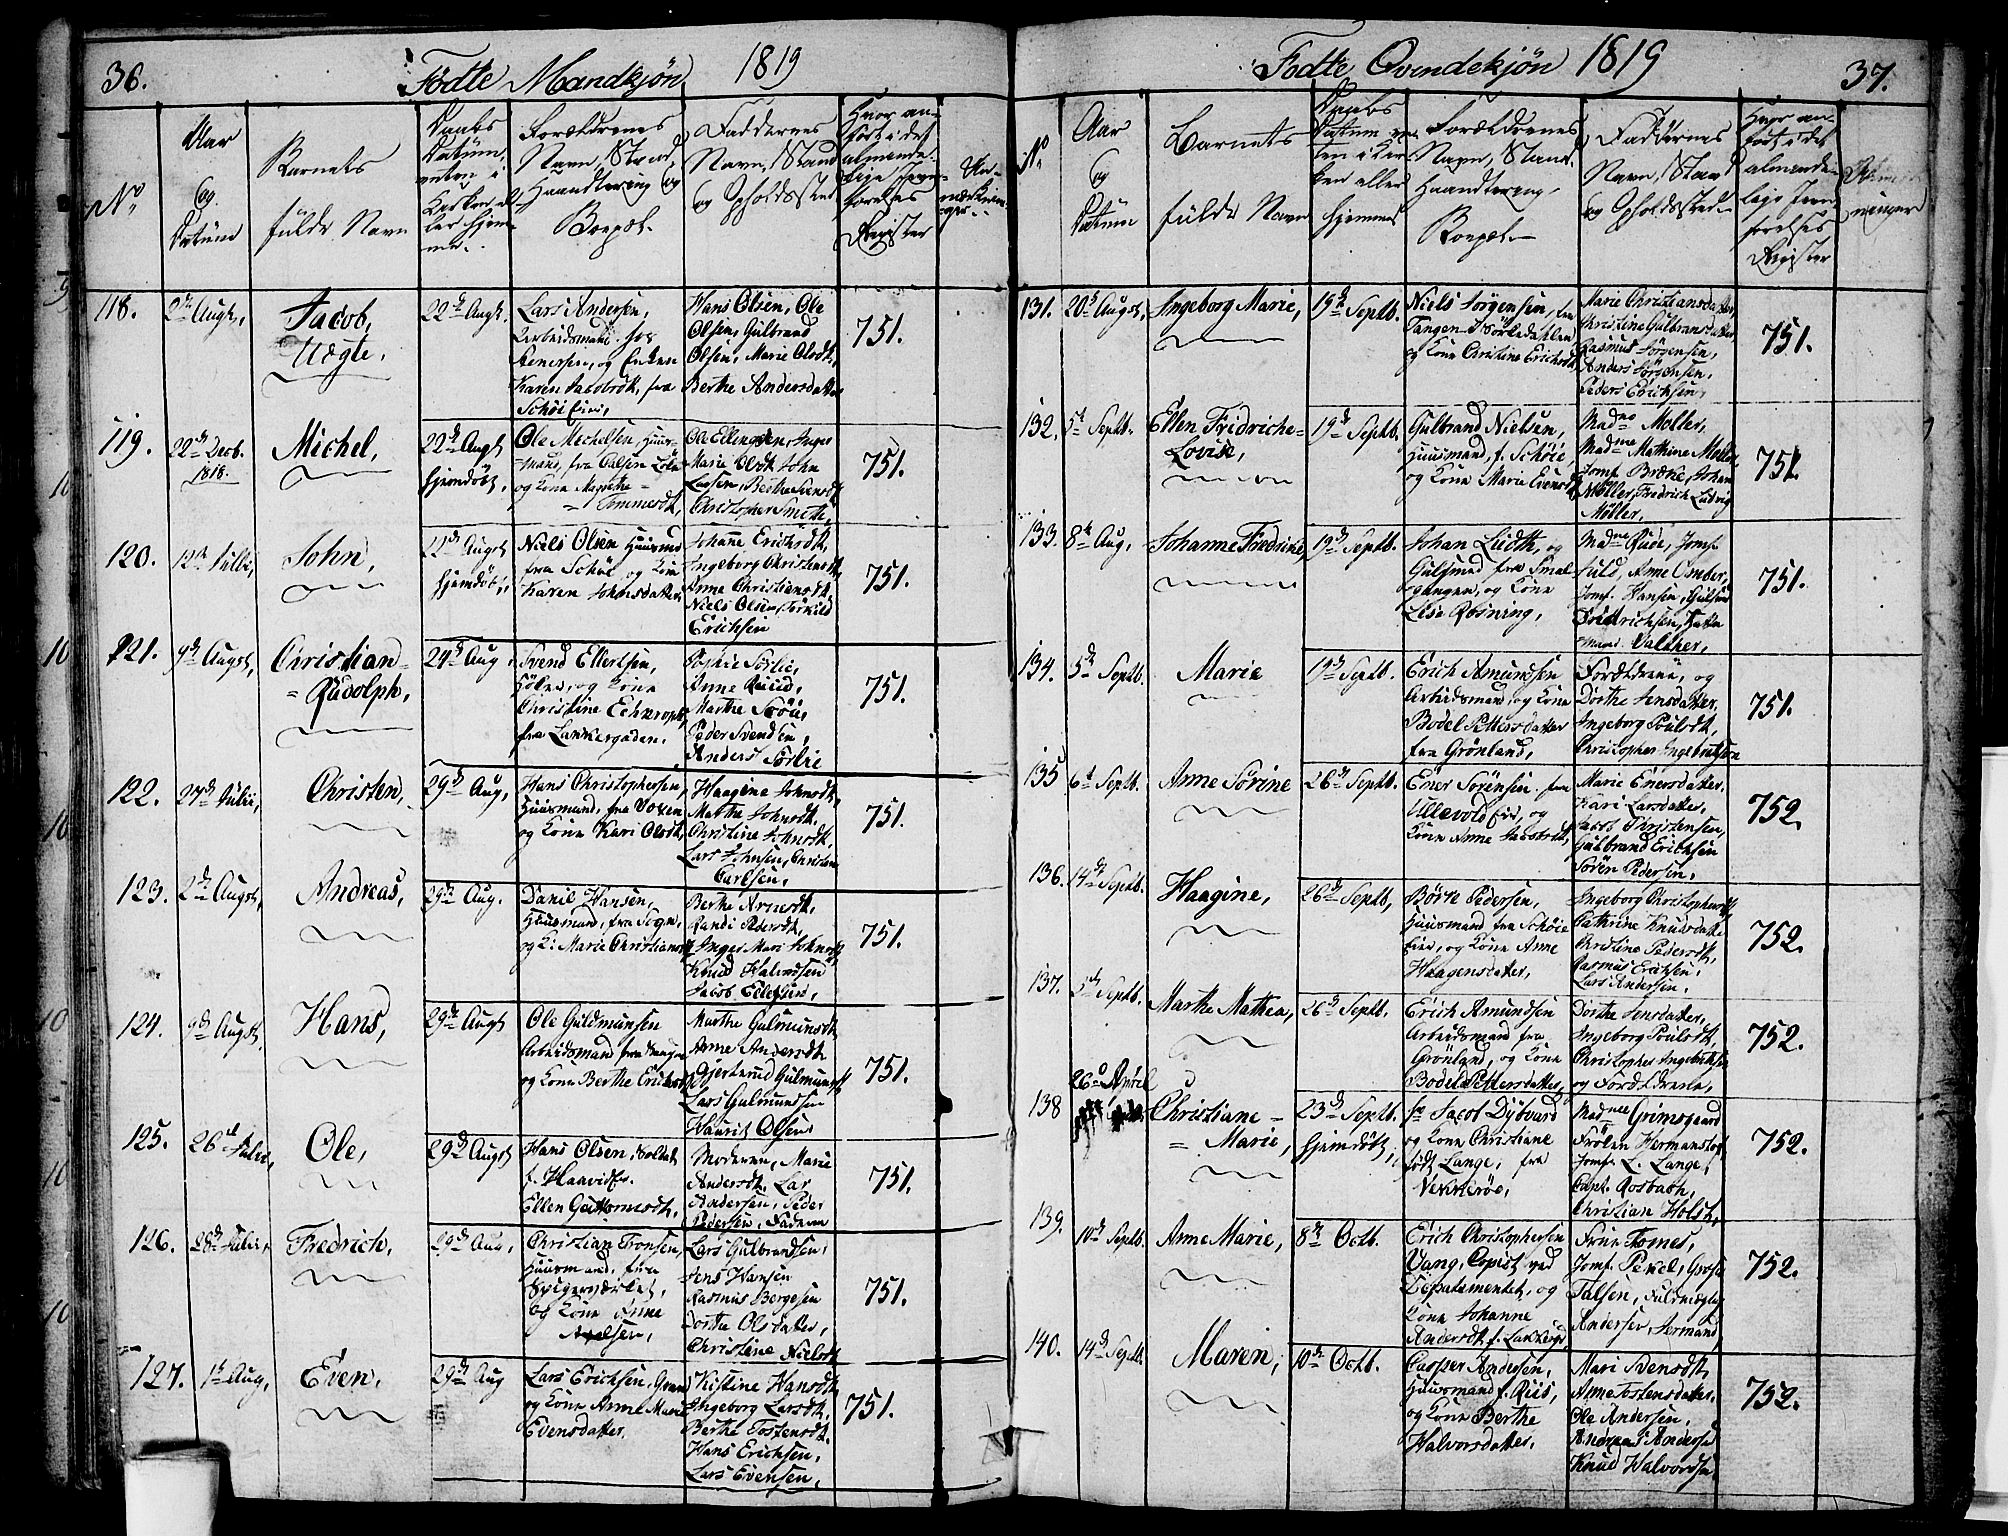 36.
Födte Mandkjön 1819
No
Aar
og
Datum
Barnets
fulde Navn
Daabs
Datum,
enten i
Kirken el-
ler hjem-
me.
Forældrenes
Navn, Stand,
Haandtering og
Boepæl.
Faddernes
Navn, Stand
og Opholdssted
Hvor an-
fört i det
alminde-
lige Jevn-
förelses
Register
An-
mærknin-
ger.
118.
2den Augt,
Jacob,
Uægte,
22de Augt.
Lars Andersen,
Arbeidsmand hos
og Enken
Karen Jacobsdt, fra
Schöi Eier,
Hans Olsen, Ole
Olsen, Gulbrand
Olsen, Marie Olsdt,
Berthe Andersdatter
751.
119.
22de Decb.
1818.
Michel,
22de Augt
hjemdöbt,
Ole Mechelsen, Huus-
mand, fra
og Kone Magrethe
= Tommesdt,
Ole Ellingsen, Inger
Marie Olsdt, John
Larsen, Berthe Svensdt
Christopher Smette,
751.
120.
12te Julii,
John,
22de Augst
hjemdöbt,
Niels Olsen Huusmd
fra Schöi, og Kone
Karen Johnsdatter,
Johanne Erichsdt,
Ingeborg Christensdt,
Anne Christiansdt,
Niels Olsen, Torkild
Erichsen
751.
121.
9de Augst,
Christian=
= Rudolph,
24de Aug,
Svend Ellertsen,
og Kone
Christine
fra Lakkegaden.
Sophie Sörlie,
Anne Ruud,
Marthe
Peder Svendsen,
Anders Sörlie
751.
122.
27de Julii,
Christen,
29de Aug,
Hans Christophersen,
Huusmand, fra Voxen
og Kone Kari Olsdt,
Haagine Johnsdt,
Marthe Johnsdt,
Christine Johnsdt,
Lars Johnsen, Christian
Carlsen,
751.
123.
2den Augst,
Andreas,
29de Aug.
Daniel Hansen,
Huusmand, fra Sogn,
og K: Marie Christiansdt
Berthe Arnesdt,
Randi Pedersdt,
Inger Mari Johnsdt,
Knud Halvorsen
Jacob Pedersen,
751.
124.
9de Augst.
Hans,
29de Augst
Ole Guldmunsen
Arbeidsmand fra
og Kone Berthe Erichsdt
Marthe Gulmunsdt
Anne Andersdt
Gjertrud Gulmunsdt
Lars Gulmundsen
Haurit Olsen
751.
125.
26de Julii,
Ole,
29de Augst
Hans Olsen, Soldat
f. Haavids
Ellen Guttormsdt,
Moderen, Marie
Andersdt, Lar
Andersen, Peder
Pedersen, Faderen
751.
126.
28de Julii,
Fredrich,
29de Aug,
Christian Tronsen,
Huusmand, fra
og Kone Anne
Axelsen,
Lars Gulbrandsen,
Jens Hansen
Rasmus Bergesen
Dorthe Olsdatter,
Christine Nielsdt
751.
127.
1te Aug,
Even,
29de Aug
Lars Erichsen,
og Kone Anne Marie
Evensdatter.
Kistine Hansdt,
Ingeborg Larsdt,
Berthe Tostensdt,
Hans Erichsen,
Lars Evensen,
751.
Födte Qvindekjön 1819
37.
No
Aar
og
Datum
Barnets
fulde Navn
Daabs
Datum en-
ten i Kir-
ken eller
hjemme
Forældrenes
Navn, Stand,
Haandtering,
Boepæl.
Faddernes
Navn, Stand
og Opholdssted
Hvor an-
fört i det
alminde-
lige Jevn-
förelses
Register
ninger
131.
20de Augst,
Ingeborg Marie,
19de Septb.
Niels Jörgensen, fra
Tangen i Sörkedahlen
og Kone Christine Erichsdt,
Marie Christiansdatter,
Christine Gulbransdatter
Rasmus Jörgensen,
Anders Jörgensen,
Peders Erichsen,
751.
132.
5te Septb.
Ellen Fredriche=
Lovise,
19de Septb.
Gulbrand Nielsen,
Huusmand, f. Schöie
og Kone Marie Evensdt,
Madme Möller,
Madme Mathine Möller,
Jomf. Bræke, Johan
Möller, Fredrich Ludvig
Möller,
751.
133.
8de Aug,
Johanne Fredrine,
19de Septb.
Johan Lüdth, og
fra Smal
gangen, og Kone
Lise Rosning,
Madme Rude, Jomf.
Juld, Anne Omber,
Jomf. Hansen,
Fridrichsen,
Valther,
751.
134.
5de Septb.
Marie
19de Septb.
Erich Amundsen
Arbeidsmand, og Kone
Bodel Pettersdatter
fra Grönland,
Forældrene, og
Dorthe Jensdatter,
Ingeborg Poulsdt,
Christopher Ingebretsen
751.
135
6te Septb.
Anne Sörine
26de Septb.
Ener Sörensen fra
Ullevold Eie, og
Kone Anne Jacobsdt,
Marie Enersdatter,
Kari Larsdatter,
Jacob Christensen,
Gulbrand Erichsen
Sören Pedersen,
752.
136.
14de Septb.
Haagine,
26de Septb,
Börre Pedersen,
Huusmand fra Schöie
Eier, og Kone Anne
Haagensdatter,
Ingeborg Christophersdt,
Cathrine Knudsdatter
Christine Pedersdt,
Rasmus Erichsen,
Lars Andersen,
752.
137.
5de Septb.
Marthe Mathea,
26de Septb.
Erich Amundsen
Arbeidsmand fra
Grönland, og Kone
Bodel Pettersdatter,
Dorthe Jensdatter,
Ingeborg Poulsdt,
Christopher Ingebretsen
og Forældrene,
752.
138
26de April
Christiane =
= Marie,
23de Septb.
hjemdöbt,
Hr Jacob Dybvard
og Kone Christiane
född Lange, fra
Vekkeröe,
Madme Grimsgaard
Frölen Hermanstof
Jomf. L. Lange,
Capt. Rosbach,
Christian Holst,
752.
139.
10de Septb.
Anne Marie,
8de Octb.
Erich Christophersen
Vang, Copist ved
Departementet, og
Kone Johanne
Andersdt f. Lakkegd
Frue Fomes,
Jomf. Pekel,
Falsen, Fuldmægtig
Andersen,
752.
140.
14de Septb.
Maren,
10de Octb.
Casper Andersen,
Huusmand f. Riis,
og Kone Berthe
Halvorsdatter,
Mari Svensdt,
Anne Tostensdatter,
Ole Andersen,
Andreas Anderse
Knud Halvorsen
752.